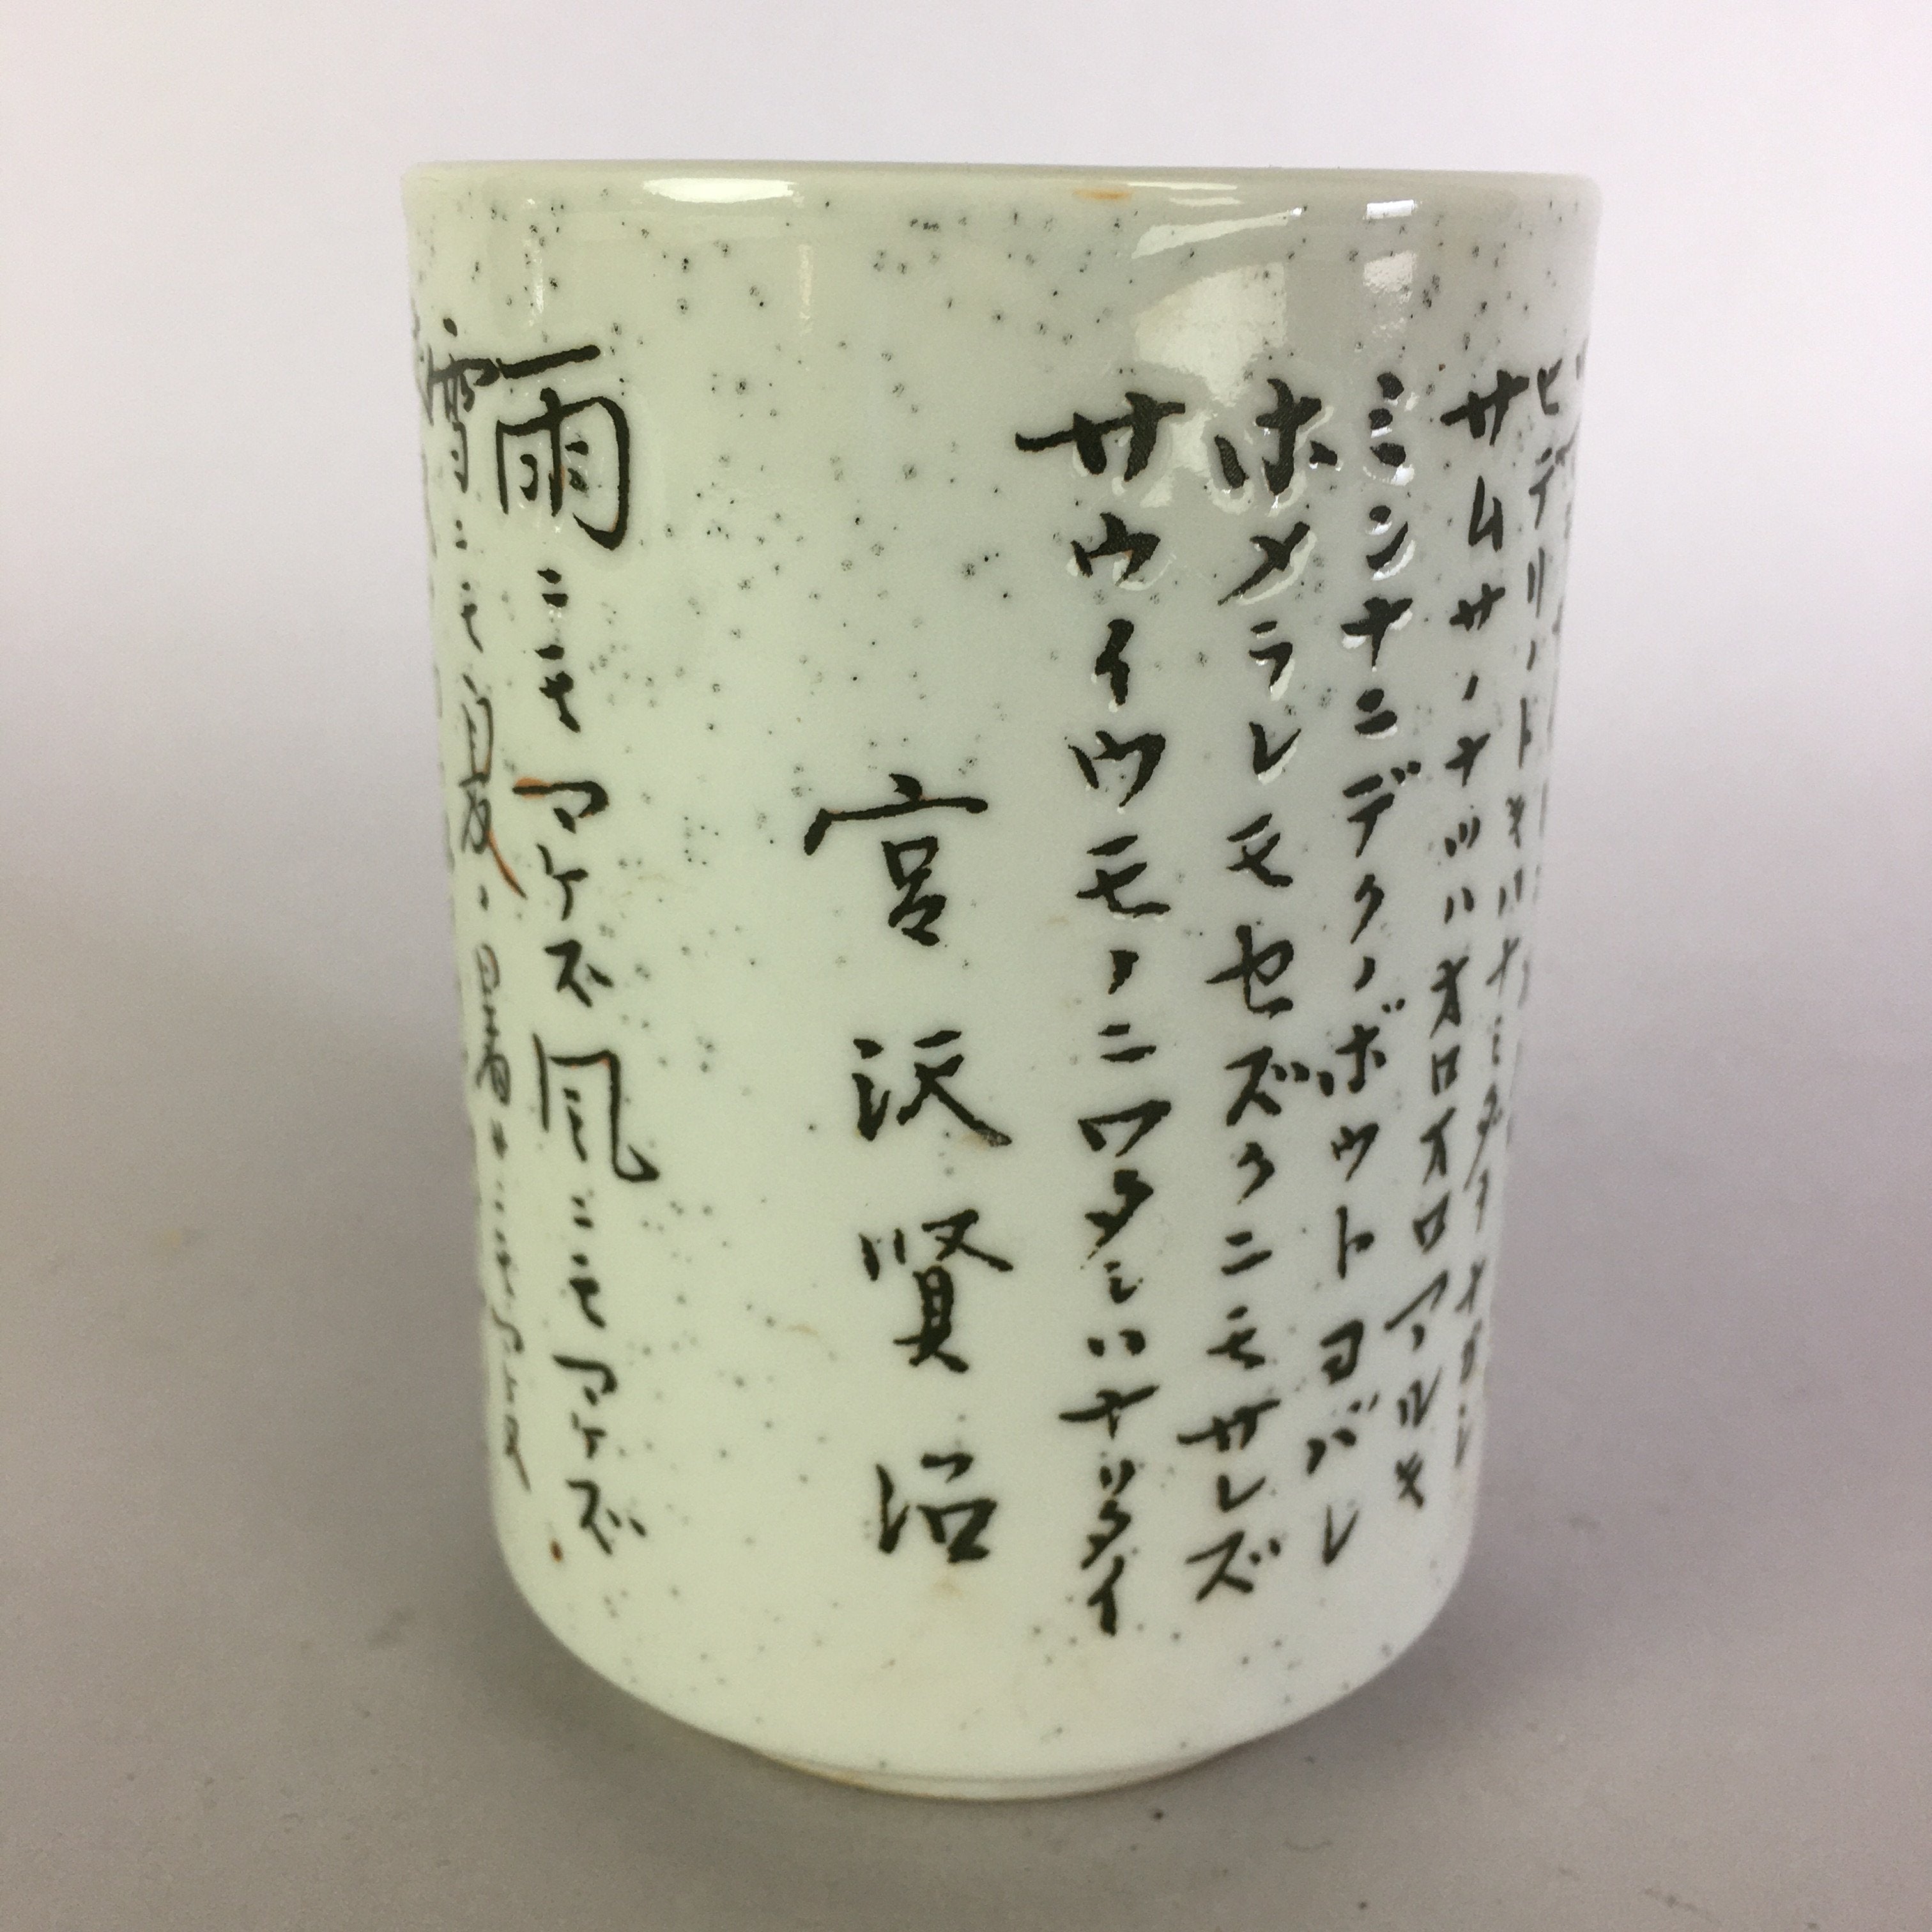 ヒデリノトキハナミダヲナガシ
サムサノナツハオロオロアルキ
ミンナニデクノボウトヨバレ
ホメラレモセズクニモサレズ
サウイウモノニワタシハナリタイ
宮沢賢治
雨ニモマケズ風ニモマケズ
雪ニモ夏ノ暑サニモマケヌ